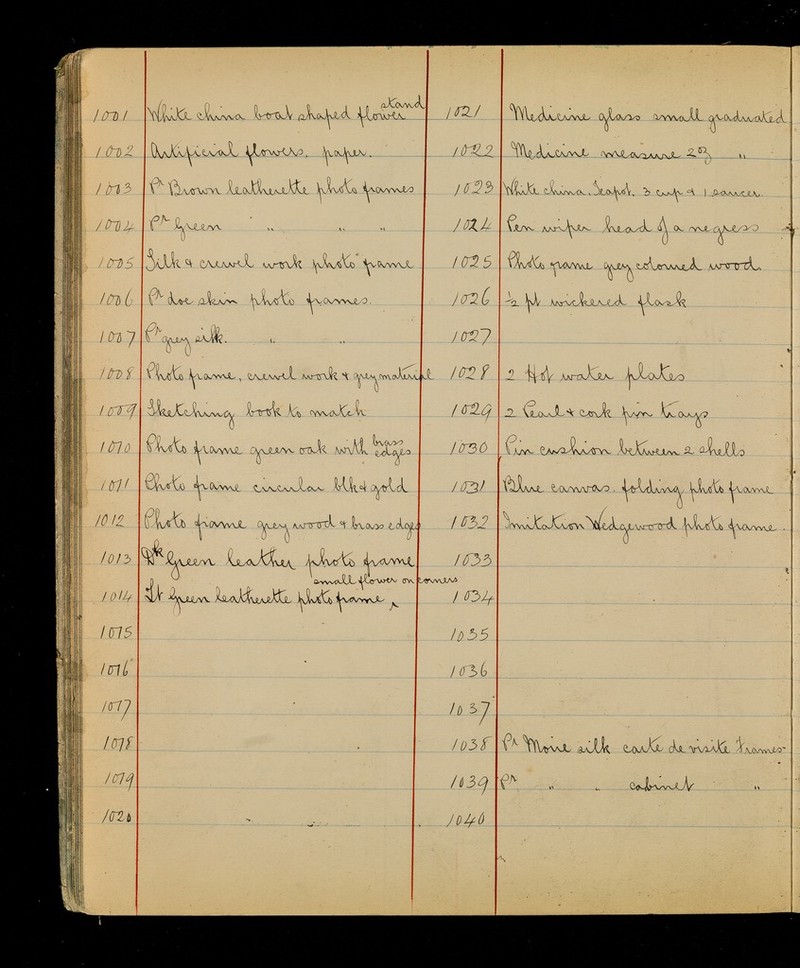 1001 White china boat shaped flower stand
1002 Artificial flowers, paper.
1003 Pr Brown leatherette photo frames
1004 Pr Green " " "
1005 Silk & crewel work photo frame
1006 Pr doe skin photo frames.
1007 Pr grey silk. " "
1008 Photo frame, crewel work & grey material
1009 Sketching book to match
1010 Photo frame green oak with brass edges
1011 Photo frame circular blk & gold
1012 Photo frame grey wood & brass edges
1013 Dk Green leather photo frame
1014 Lt Green leatherette photo frame ^ small flower on corners
1015
1016
1017
1018
1019
1020
1021 Medicine glass small graduated
1022 Medicine measure 2 oz "
1023 White china, Teapot. 3 cups & 1 saucer
1024 Pen wiper head of a negress
1025 Photo frame grey coloured wood.
1026 ½ pt wickered flask
1027
1028 2 Hot water plates
1029 2 Pearl & cork pin trays
1030 Pin cushion between 2 shells
1031 Blue canvas, folding photo frame
1032 Imitation Wedgewood photo frame.
1033
1034
1035
1036
1037
1038 Pr Moire silk carte de visite frames
1039 Pr " " cabinet "
1040